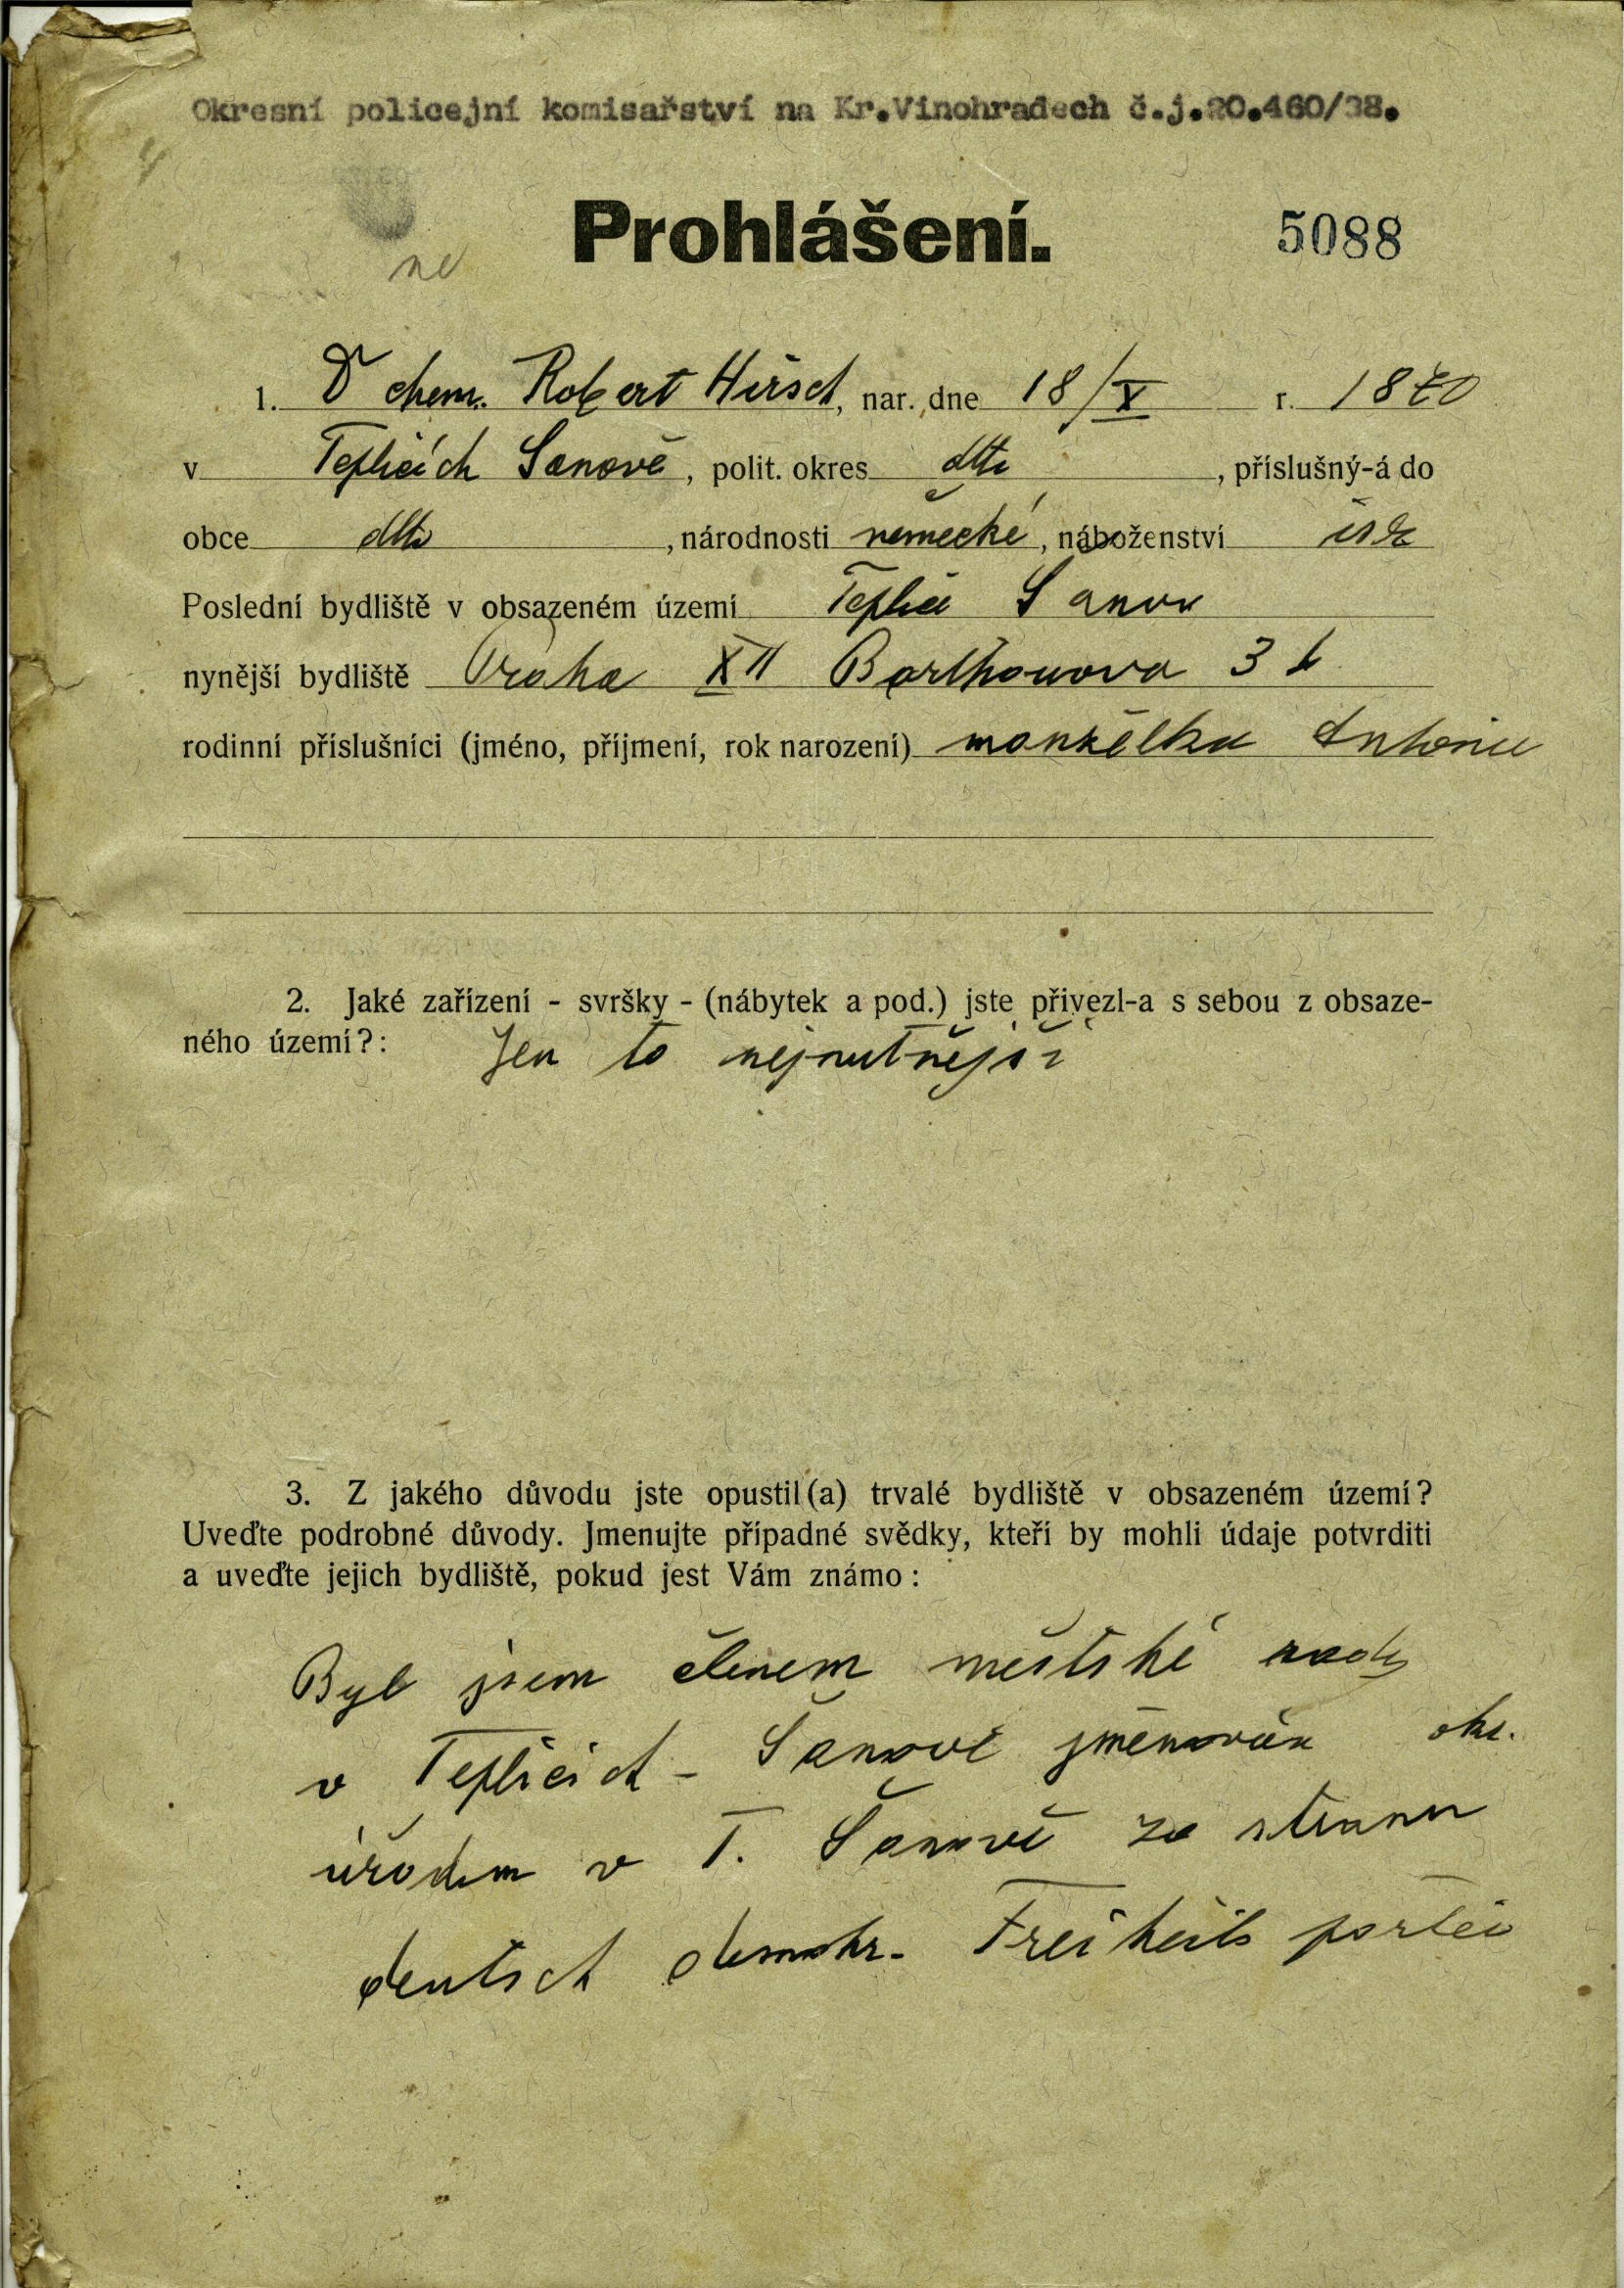 Okresní policejní komisařství na Kr.Vinohradech č.j.20.460/38.
Prohlášení.
5088
ne
1. Dr chem. Robert Hirsch, nar. dne 18/X r. 1870
v Teplicích Šanově, polit. okres dtto, příslušný-á do
obce dtto, národnosti německé, náboženství isr
Poslední bydliště v obsazeném území Teplice Šanov
nynější bydliště Praha XII Barthouova 3 b
rodinní příslušníci (jméno, příjmení, rok narození) manželka Antonie
2. Jaké zařízení - svršky - (nábytek a pod.) jste přivezl-a s sebou z obsaze-
ného území?: Jen to nejnutnější
3. Z jakého důvodu jste opustil(a) trvalé bydliště v obsazeném území?
Uveďte podrobné důvody. Jmenujte případné svědky, kteří by mohli údaje potvrditi
a uveďte jejich bydliště, pokud jest Vám známo:
Byl jsem členem městské rady
v Teplicích - Šanově jmenován okr.
úřadem v T. Šanově za stranu
deutsch demokr. Freiheits partei